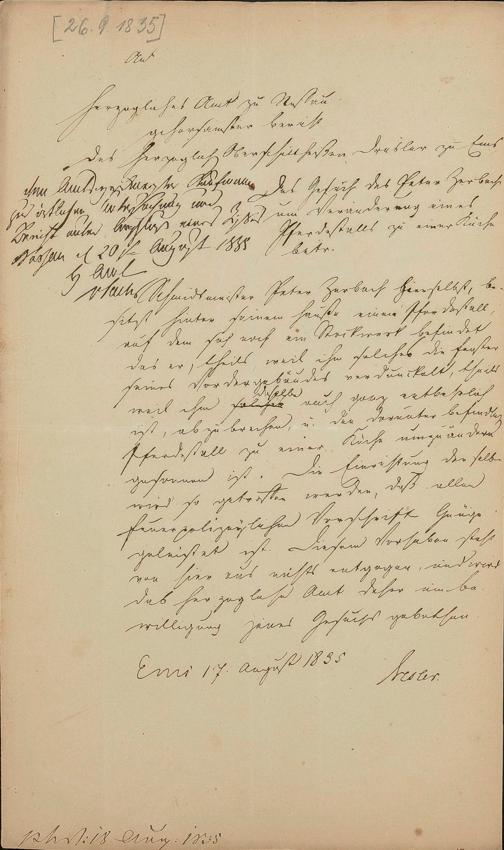 [26.9 1835]
An
Herzogliches Amt zu Nassau
gehorsamster Bericht
Des Herzoglich Oberschultheißen zu Ems
Das Gesuch des Peter Zerbach
um Veränderung eines
Pferdestalls zu einer Küche
betr.
dem Amts
zur örtlichen Untersuchung und
Bericht unter eines
Nassau d 20 August 1835
H. Amt
Schmidmeister Peter Zerbach hierselbst, be-
sitzt hinter seinem Hauße einen Pferdestall,
auf dem sich noch ein Stockwerk befindet
das er, theils weil ihm solches die Fenster
seines Vordergebäudes verdunckelt, theils
weil ihm dasselbe auch ganz entbehrlich
ist, abzubrechen, u. den darunter befindlichen
Pferdestall zu einer Küche umzuändern
gesonnen ist. Die Einrichtung derselben
wird so getroffen werden, daß allen
feuerpolizeylichen Vorschrift Genüge
geleistet ist. Diesem Vorhaben steht
von hier aus nichts entgegen, und wird
das herzogliche Amt daher um be-
willigung jenes Gesuchs gebethen.
Ems 17. August 1835
18 Aug. 1835